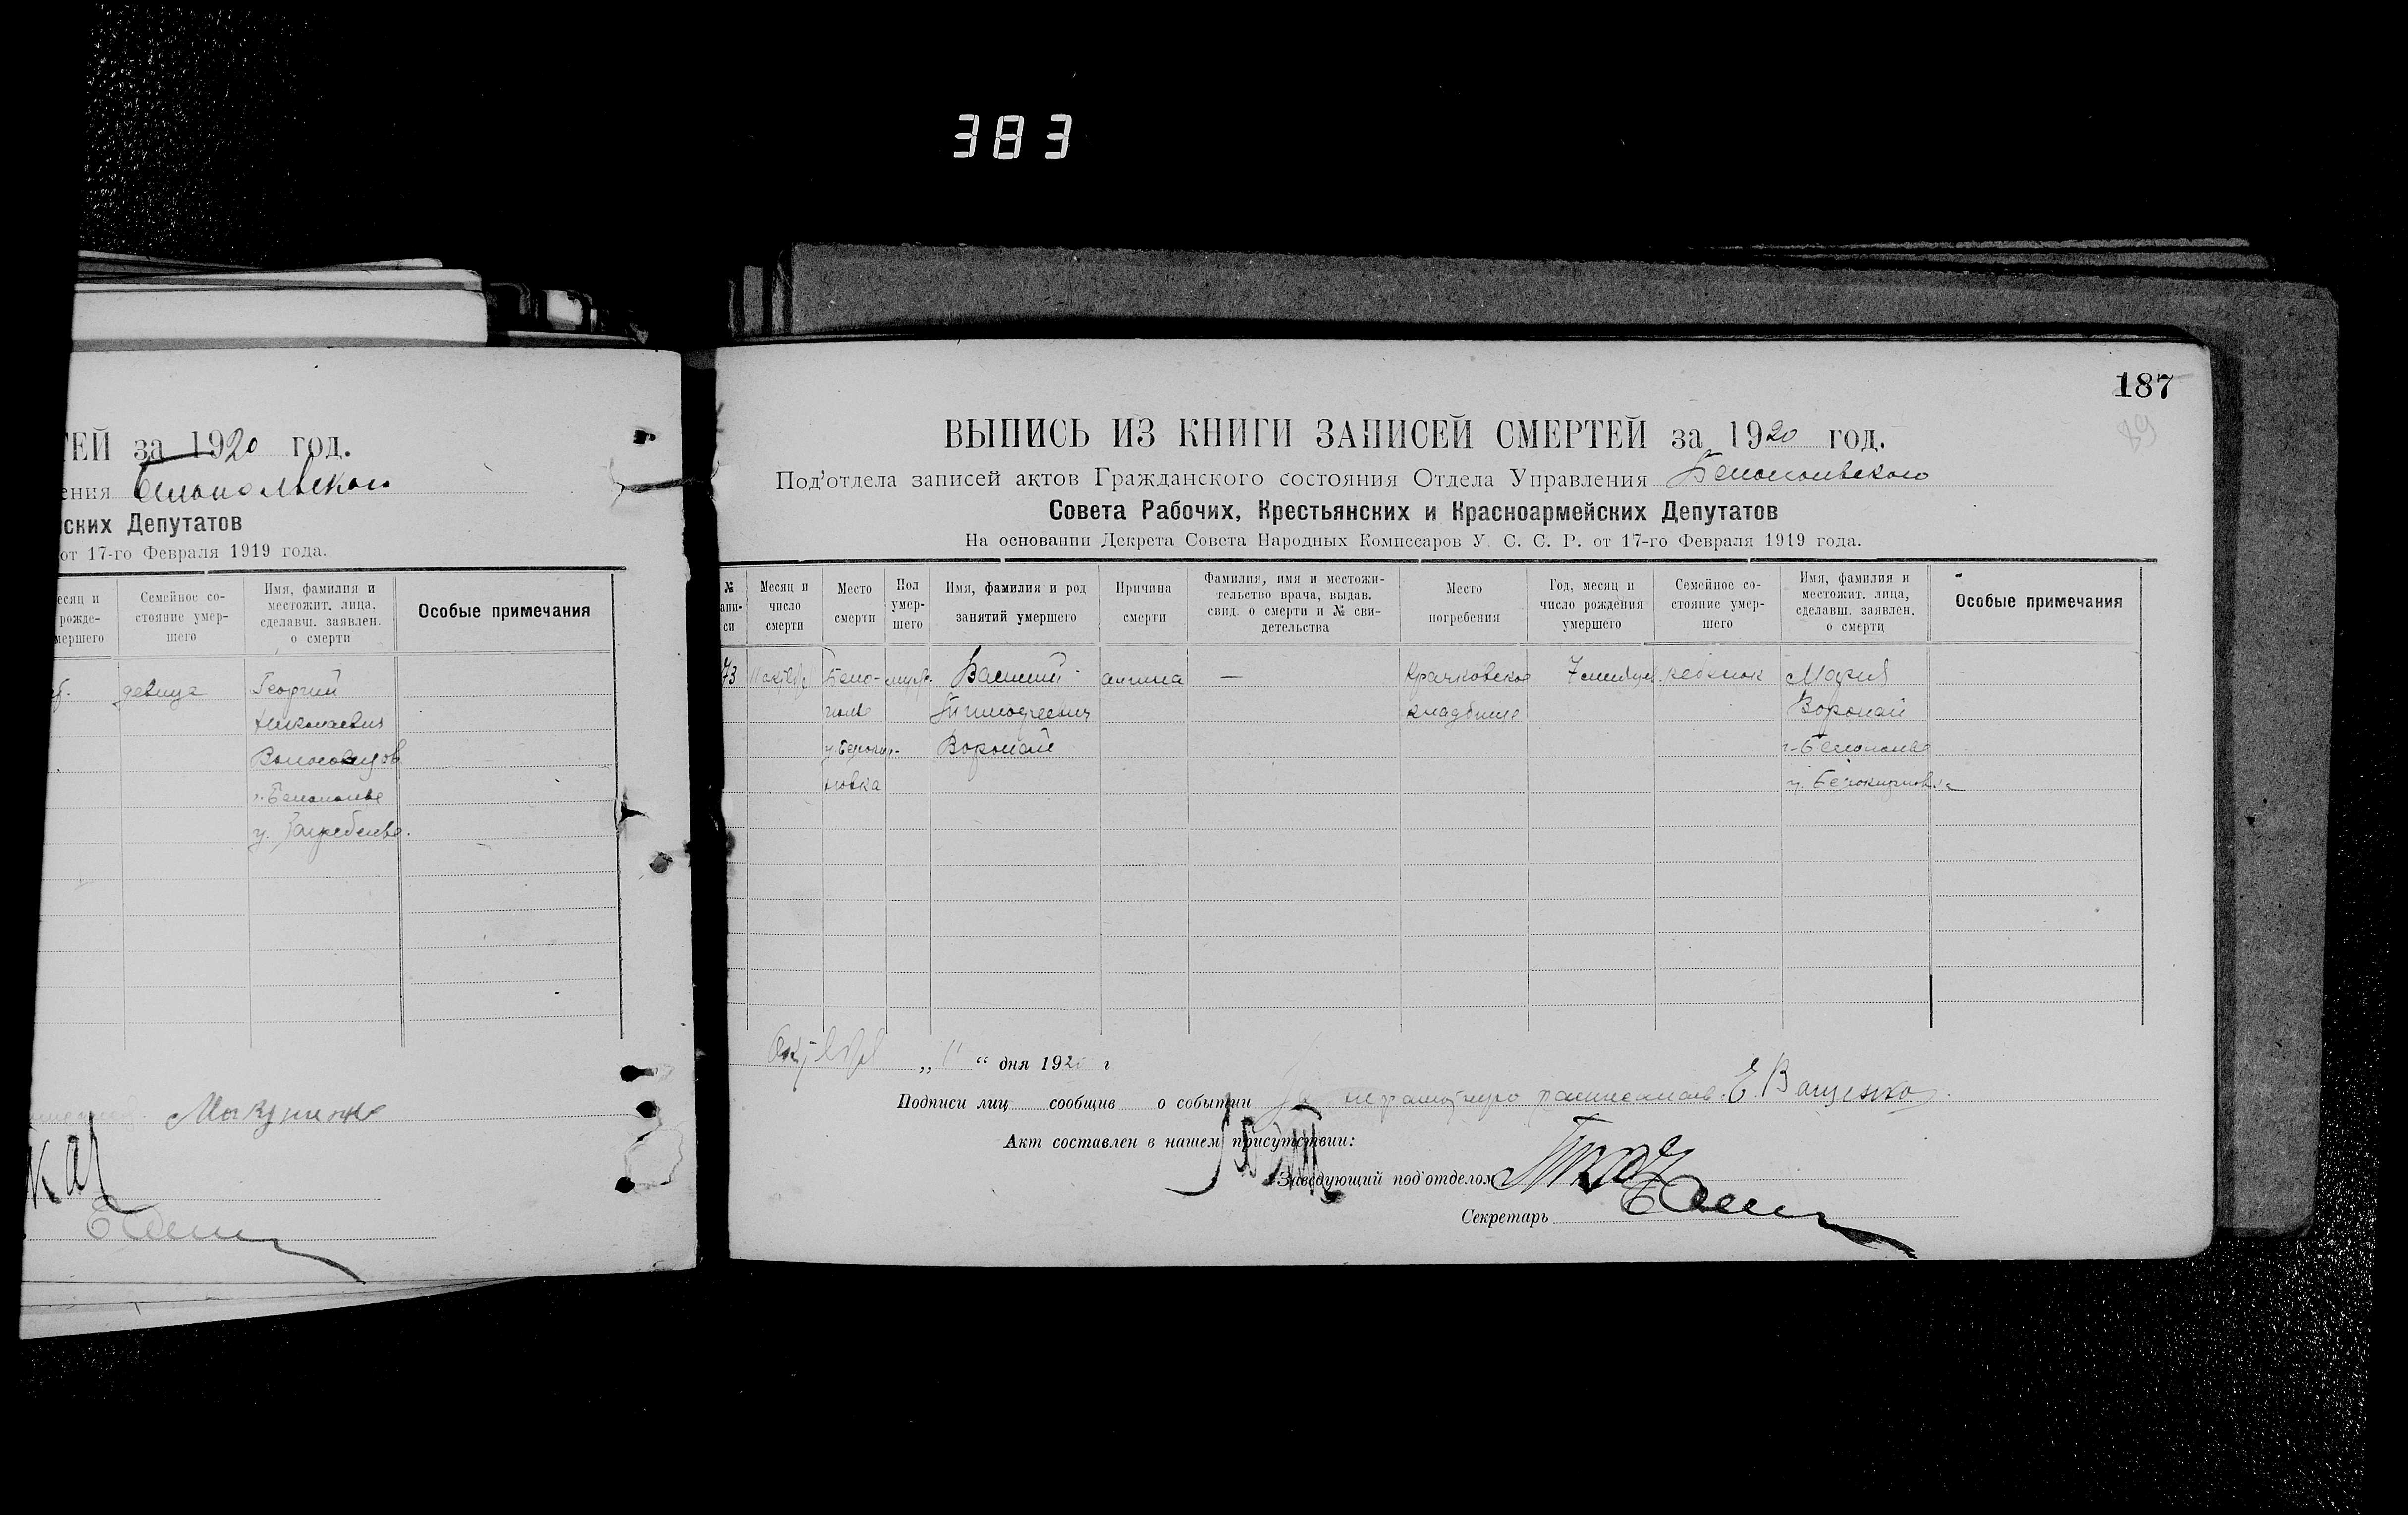 383
ТЕЙ за 1920 год.
ения Белопольского
ских Депутатов
от 17-го Февраля 1919 года.
есяц и рожде- мершего
Семейное со- стояние умер- шего
Имя, фамилия и местожит. лица, сделавш. заявлен. о смерти
Особые примечания
девица Георгий
Николаевич
г. Белополье
у.
Ткач
187
89
ВЫПИСЬ ИЗ КНИГИ ЗАПИСЕЙ СМЕРТЕЙ за 1920 год.
Под'отдела записей актов Гражданского состояния Отдела Управления Белопольского
Совета Рабочих, Крестьянских и Красноармейских Депутатов
На основании Декрета Совета Народных Комиссаров У. С. С. Р. от 17-го Февраля 1919 года.
№ апи- си
Месяц и число смерти
Место смерти
Пол умер- шего
Имя, фамилия и род занятий умершего
Причина смерти
Фамилия, имя и местожи- тельство врача, выдав. свид. о смерти и № сви- детельства
Место погребения
Год, месяц и число рождения умершего
Семейное со- стояние умер- шего
Имя, фамилия и местожит. лица, сделавш. заявлен. о смерти
Особые примечания
73 11 октября Бело- мужс. Василий ангина — Крачковское 7 месяцев ребенок Мария
полье Тимофеевич кладбище Воропай
Воропай г. Белополье
новка
Октября „ 11 “ дня 1920 г
Подписи лиц сообщив о событии За неграмотную расписалась Е. Ващенко
Акт составлен в нашем присутствии:
Заведующий под'отделом Ткач
Секретарь